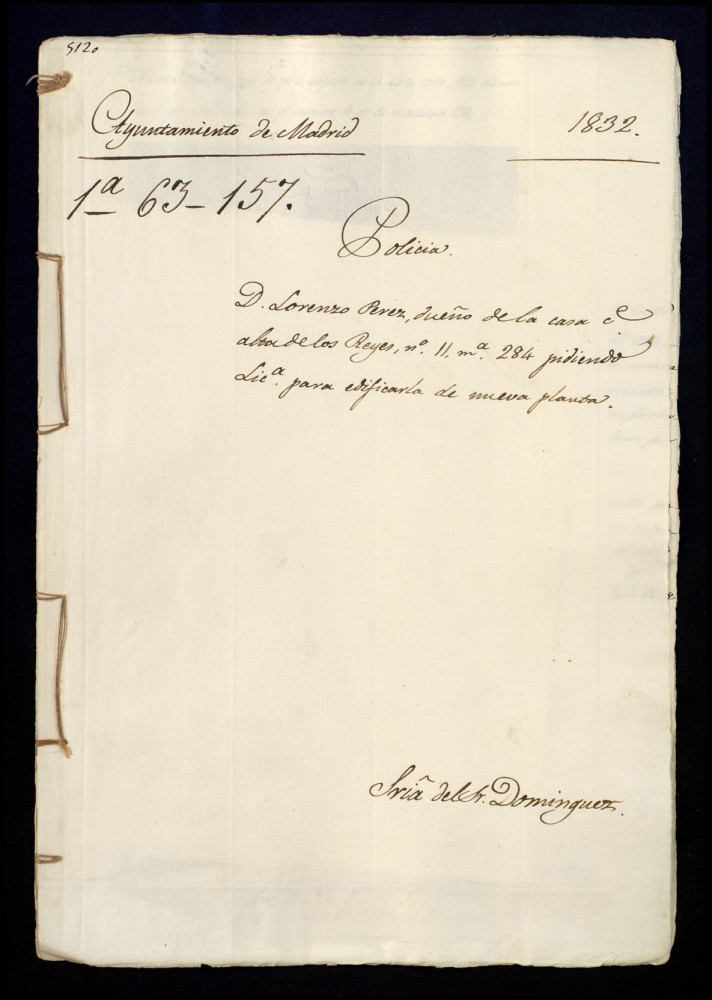 5120
Ayuntamiento de Madrid
1832.
1ª 63-157.
Policia.
D. Lorenzo Perez, dueño de la casa cͤ
alta de los Reyes, nº. 11, mª. 284 pidiendo
Licª. para edificarla de nueva planta.
Sriã del Sr. Dominguez.